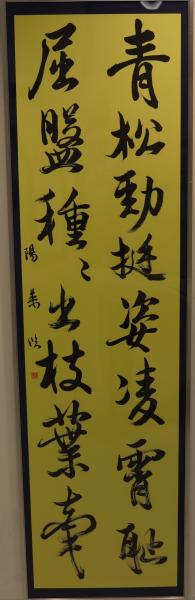 青松勁挺姿凌霄恥
屈盤種〻出枝葉牽
陽